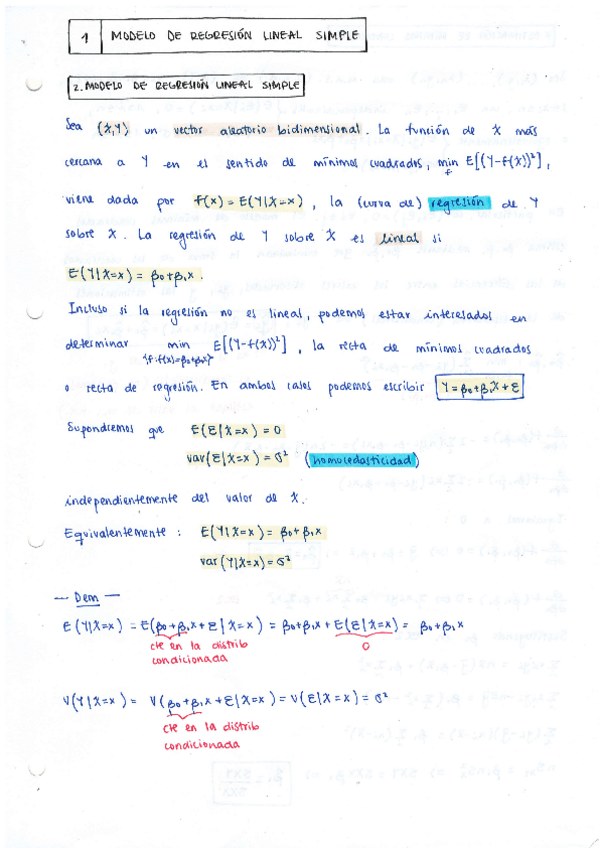 1 MODELO DE REGRESIÓN LINEAL SIMPLE
2. MODELO DE REGRESIÓN LINEAL SIMPLE
Sea (X,Y) un vector aleatorio bidimensional. La función de X más
cercana a Y en el sentido de mínimos cuadrados, min_f E[(Y-f(X))²],
viene dada por f(x) = E(Y|X=x), la (curva de) regresión de Y
sobre X. La regresión de Y sobre X es lineal si
E(Y|X=x) = β₀+β₁x.
Incluso si la regresión no es lineal, podemos estar interesados en
determinar min E[(Y-f(X))²], la recta de mínimos cuadrados
{f: f(x)=β₀+β₁x}
o recta de regresión. En ambos casos podemos escribir Y=β₀+β₁X+ε
Supondremos que E(ε|X=x) = 0
var(ε|X=x) = σ² (homocedasticidad)
independientemente del valor de X.
Equivalentemente: E(Y|X=x) = β₀+β₁x
var(Y|X=x) = σ²
— Dem —
E(Y|X=x) = E(β₀+β₁x+ε|X=x) = β₀+β₁x+E(ε|X=x) = β₀+β₁x
cte en la distrib 0
condicionada
V(Y|X=x) = V(β₀+β₁x+ε|X=x) = V(ε|X=x) = σ²
cte en la distrib
condicionada